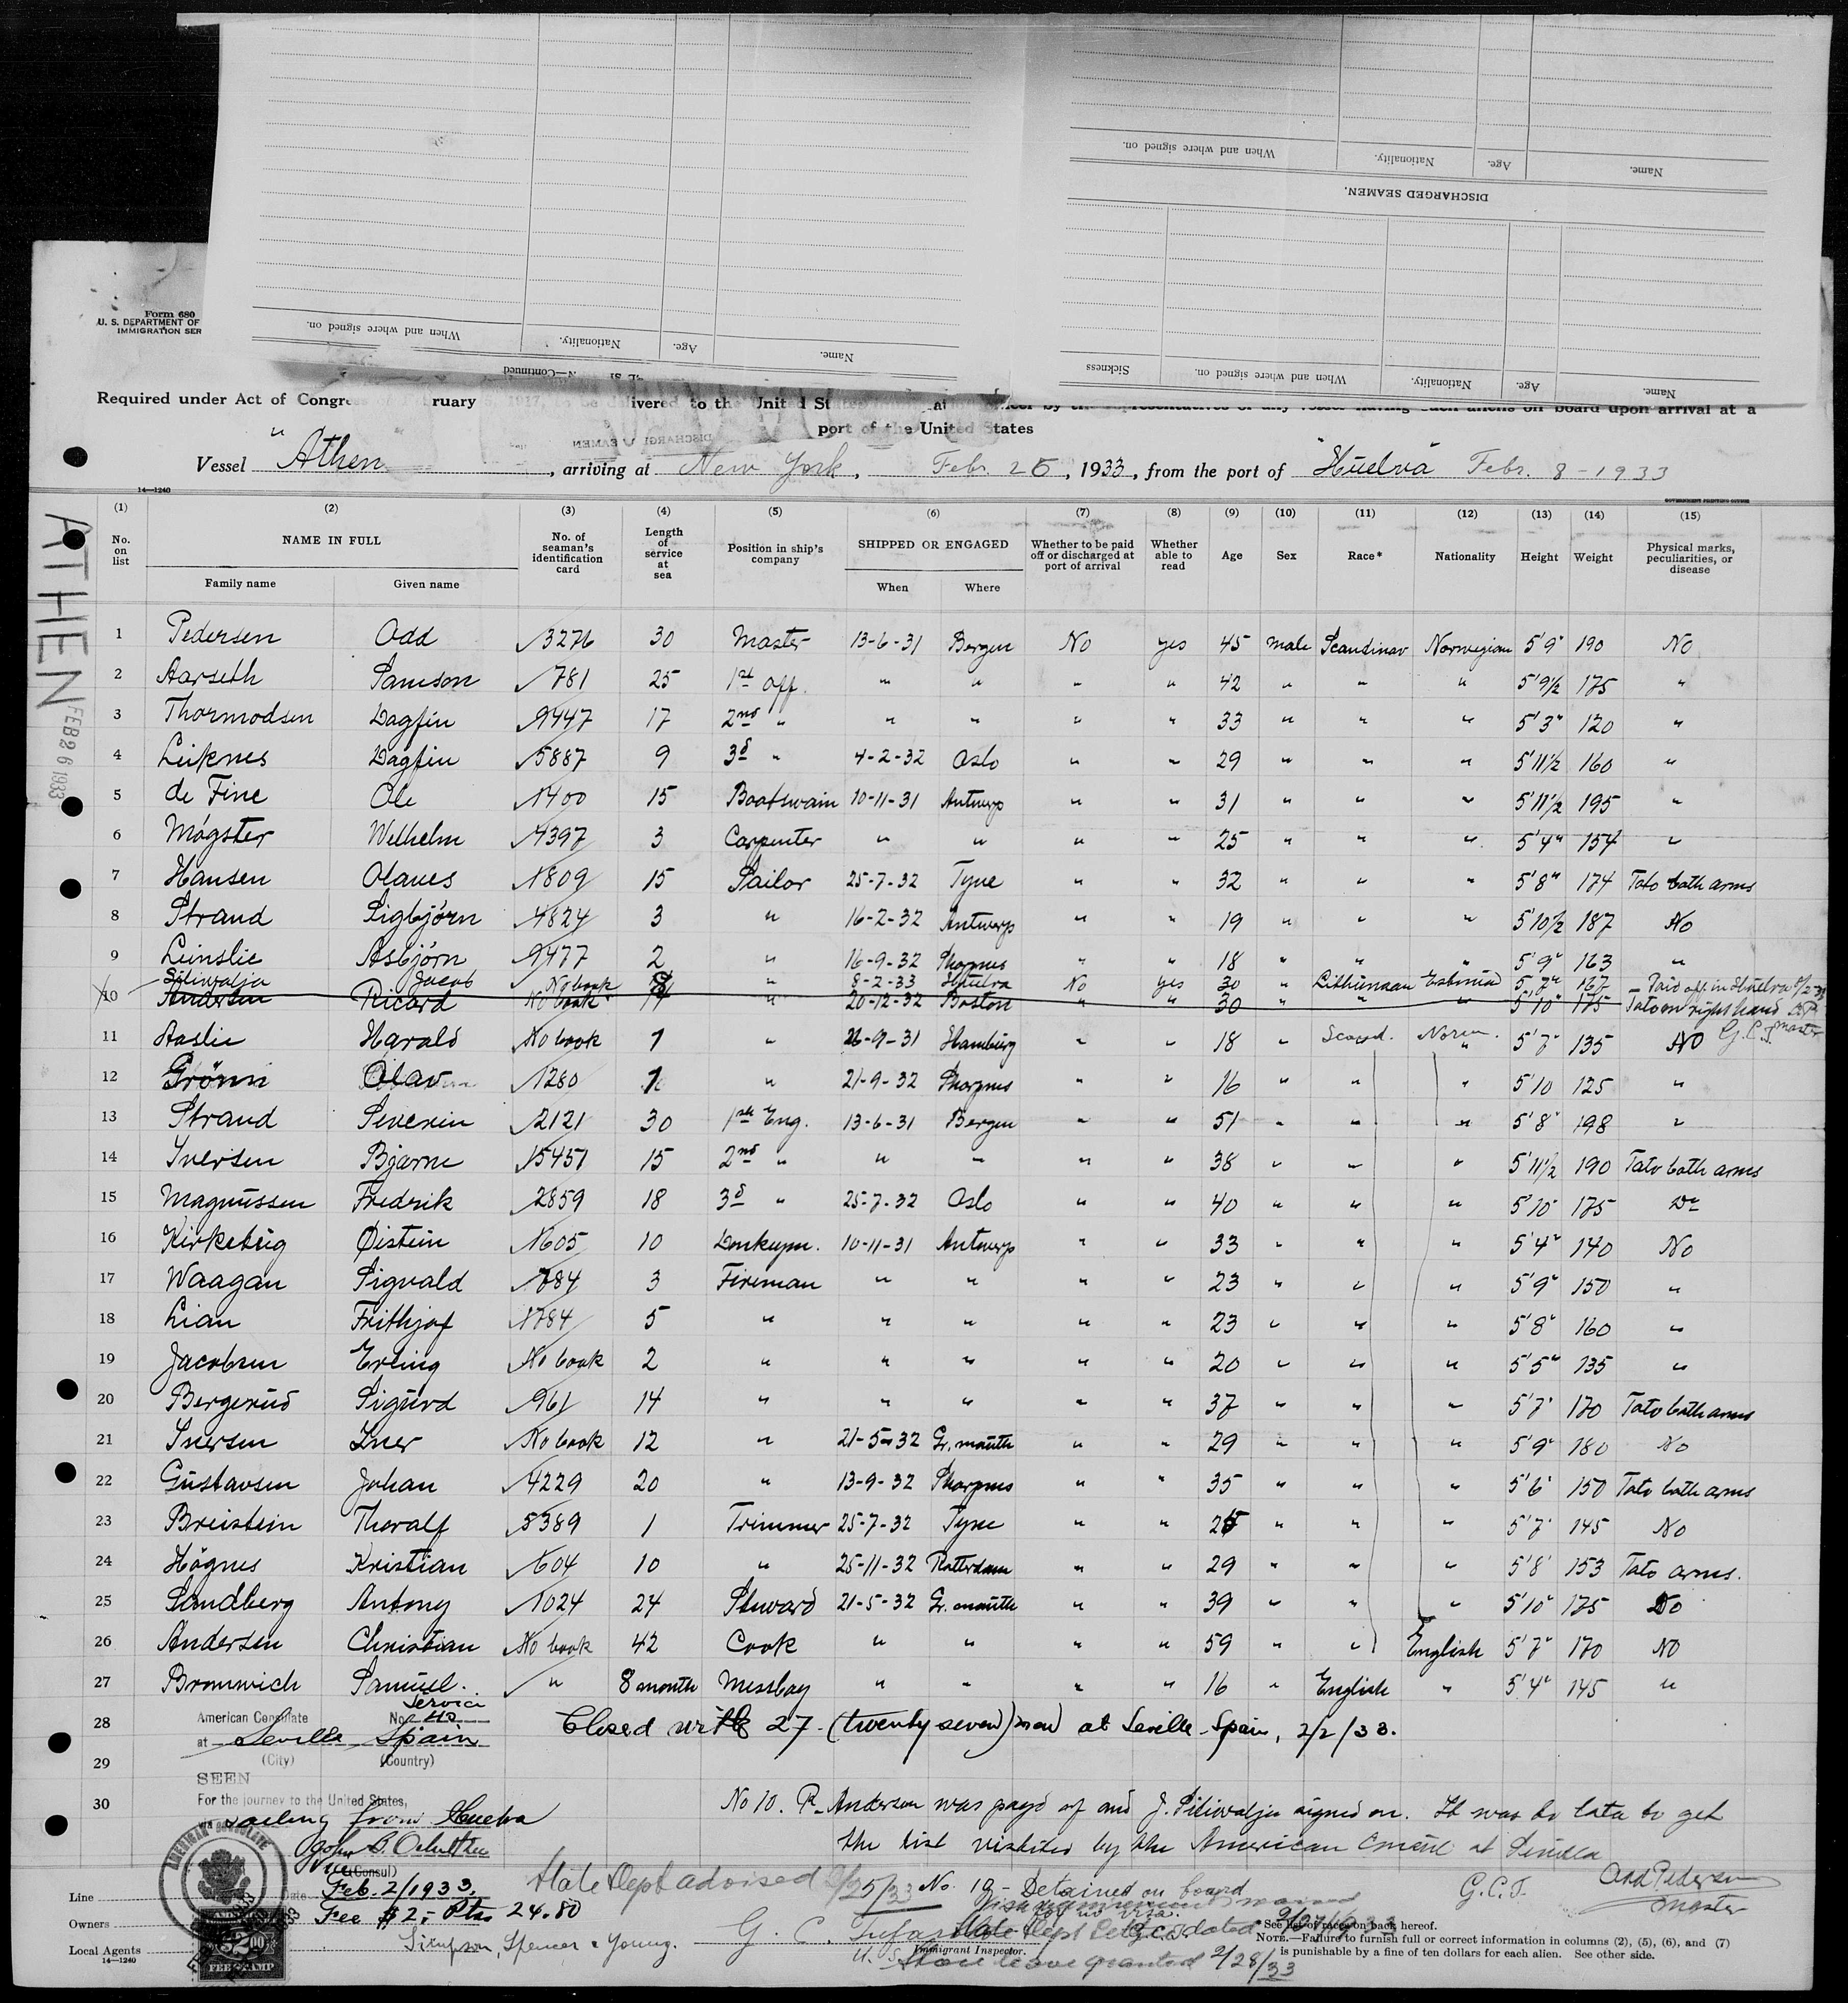 When and where signed on.
Nationality.
Age.
Name.
DISCHARGED SEAMEN.
When and where signed on.
Nationality.
Age.
Name.
Sickness
When and where signed on.
Nationality.
Age.
Name.
Form 680
U. S. DEPARTMENT OF
IMMIGRATION SER
Required under Act of Congress ruary 5, 1917, to be delivered to the United States by the representatives of any vessel having such aliens on board upon arrival at a
port of the United States
Vessel "Athen , arriving at New York, Febr. 26, 1933, from the port of "Huelva" Febr. 8-1933
14—1240
ATHEN
FEB 26 1933
(1) (2) (3) (4) (5) (6) (7) (8) (9) (10) (11) (12) (13) (14) (15)
No. on list NAME IN FULL Family name Given name No. of seaman's identification card Length of service at sea Position in ship's company SHIPPED OR ENGAGED When Where Whether to be paid off or discharged at port of arrival Whether able to read Age Sex Race* Nationality Height Weight Physical marks, peculiarities, or disease
1 Pedersen Odd 3276 30 Master 13-6-31 Bergen No yes 45 male Scandinav Norwegian 5'9" 190 No
2 Aarseth Samson 781 25 1st off. " " " " 42 " " " 5'9½ 175 "
3 Thormodsen Dagfin 9447 17 2nd " " " " " 33 " " " 5'3" 120 "
4 Leiknes Dagfin 5887 9 3d " 4-2-32 Oslo " " 29 " " " 5'11½ 160 "
5 de Fine Ole 1400 15 Boatswain 10-11-31 Antwerp " " 31 " " " 5'11½ 195 "
6 Mögster Wilhelm 4397 3 Carpenter " " " " 25 " " " 5'4" 154 "
7 Hansen Olaves 1809 15 Sailor 25-7-32 Tyne " " 32 " " " 5'8" 174 Tato both arms
8 Strand Sigbjørn 4824 3 " 16-2-32 Antwerp " " 19 " " " 5'10½ 187 No
9 Leinslie Asbjørn 9477 2 " 16-9-32 " " 18 " " " 5'9" 163 "
Jacob No book 8 " 8-2-33 Huelva No yes 30 " Lithunian Estonia 5'7" 167 - Paid off in Huelva 8/2-33
10 Andersen Ricard No book 14 " 20-12-32 Boston " " 30 " " " 5'10" 175 Tato on right hand O.P. Master
G.C.T.
11 Aaslie Harald No book 1 " 26-9-31 Hamburg " " 18 " Scand. Norw. 5'7" 135 No
12 Grönn Olav 1280 1 " 21-9-32 " " 16 " " " 5'10 125 "
13 Strand Severin 2121 30 1st Eng. 13-6-31 Bergen " " 51 " " " 5'8" 198 "
14 Iversen Bjarne 15451 15 2nd " " " " " 38 " " " 5'11½ 190 Tato both arms
15 Magnussen Fredrik 2859 18 3d " 25-7-32 Oslo " " 40 " " " 5'10" 175 Do
16 Kirkebeig Øistein 1605 10 Donkeym. 10-11-31 Antwerp " " 33 " " " 5'4" 140 No
17 Waagan Sigvald 784 3 Fireman " " " " 23 " " " 5'9" 150 "
18 Lian Frithjof 1784 5 " " " " " 23 " " " 5'8" 160 "
19 Jacobsen Erling No book 2 " " " " " 20 " " " 5'5" 135 "
20 Bergerud Sigurd 961 14 " " " " " 37 " " " 5'7" 170 Tato both arms
21 Iversen Iver No book 12 " 21-5-32 Gr. mouth " " 29 " " " 5'9" 180 No
22 Gustavsen Johan 4229 20 " 13-9-32 " " 35 " " " 5'6" 150 Tato both arms
23 Breistein Thoralf 5389 1 Trimmer 25-7-32 Tyne " " 25 " " " 5'7" 145 No
24 Högnes Kristian 1604 10 " 25-11-32 Rotterdam " " 29 " " " 5'8" 153 Tato arms.
25 Sandberg Antony 1024 24 Steward 21-5-32 Gr. mouth " " 39 " " " 5'10" 175 No
26 Andersen Christian No book 42 Cook " " " " 59 " " English 5'7" 170 No
27 Bromwich Samuel. " 8 month Messboy " " " " 16 " English " 5'4" 145 "
28 American Consulate Service No. 42 Closed with 27 (twenty seven) men at Seville - Spain, 2/2/33.
at Seville Spain
(City) (Country)
29
SEEN
30 For the journey to the United States, No 10. R. Anderson was payd of and J. signed on. It was to late to get
via sailing from Huelva the list by the American Consul at Sevilla
John B.
Vice (Consul) Odd Pedersen
Master
G.C.T.
AMERICAN CONSULATE
Line
Date Feb. 2/1933.
Owners Fee $2,- Ptas 24.80
State Dept advised 2/25/33 No. 19 - Detained on board
no visa.
Local Agents Simpson, Spencer & Young.
G. C.
Immigrant Inspector.
State Dept dated 2/27/33
U. S. Shore leave granted 2/28/33
*See list of races on back hereof.
NOTE.—Failure to furnish full or correct information in columns (2), (5), (6), and (7)
is punishable by a fine of ten dollars for each alien. See other side.
14—1240
$2.00
FEE STAMP